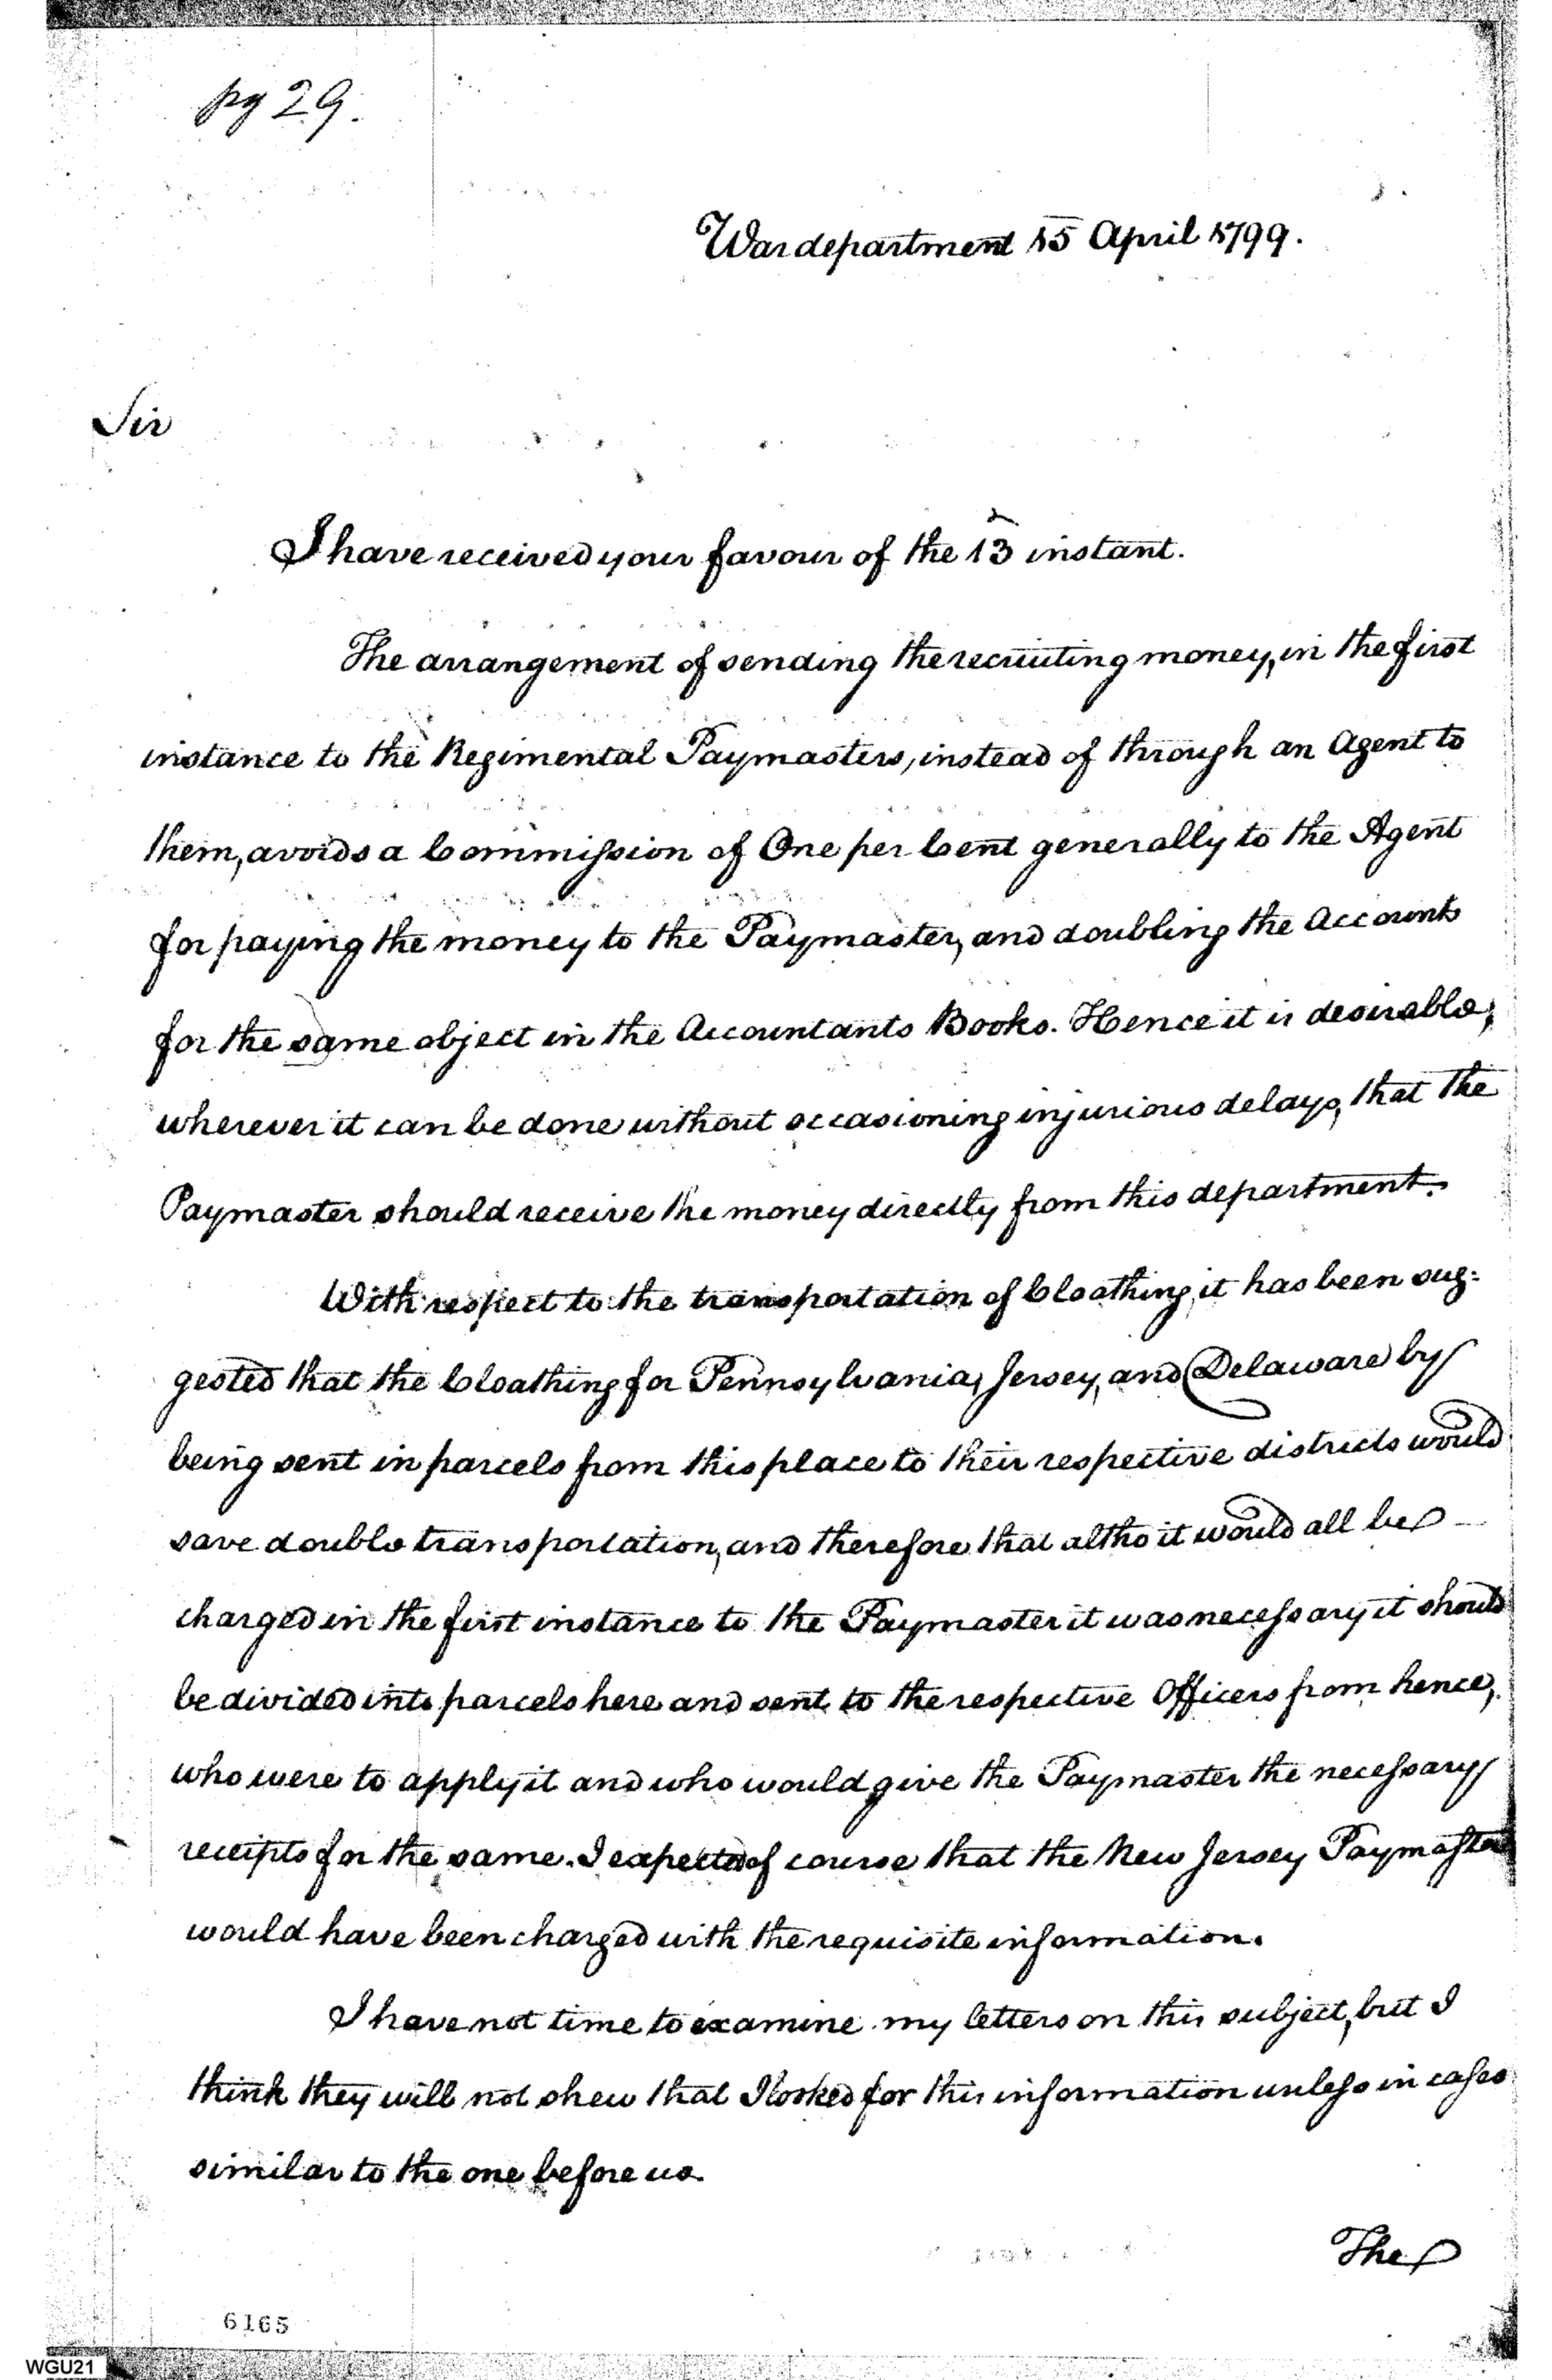 pg 29.
War department 15 April 1799.
Sir
I have received your favour of the 13 instant.
The arrangement of sending the recruiting money, in the first
instance to the Regimental Paymasters, instead of through an Agent to
them, avoids a Commission of One per Cent generally to the Agent
for paying the money to the Paymaster, and doubling the Accounts
for the same object in the Accountants Books. Hence it is desirable,
wherever it can be done without occasioning injurious delays, that the
Paymaster should receive the money directly from this department.
With respect to the transportation of Cloathing, it has been sug=
gested that the Cloathing for Pennsylvania, Jersey, and Delaware by
being sent in parcels from this place to their respective districts would
save double transportation, and therefore that altho it would all be
charged in the first instance to the Paymaster it was necessary it should
be divided into parcels here and sent to the respective Officers from hence,
who were to apply it and who would give the Paymaster the necessary
receipts for the same. I expected of course that the New Jersey Paymaster
would have been charged with the requisite information.
I have not time to examine my letters on this subject, but I
think they will not shew that I looked for this information unless in cases
similar to the one before us.
The
6165
WGU21